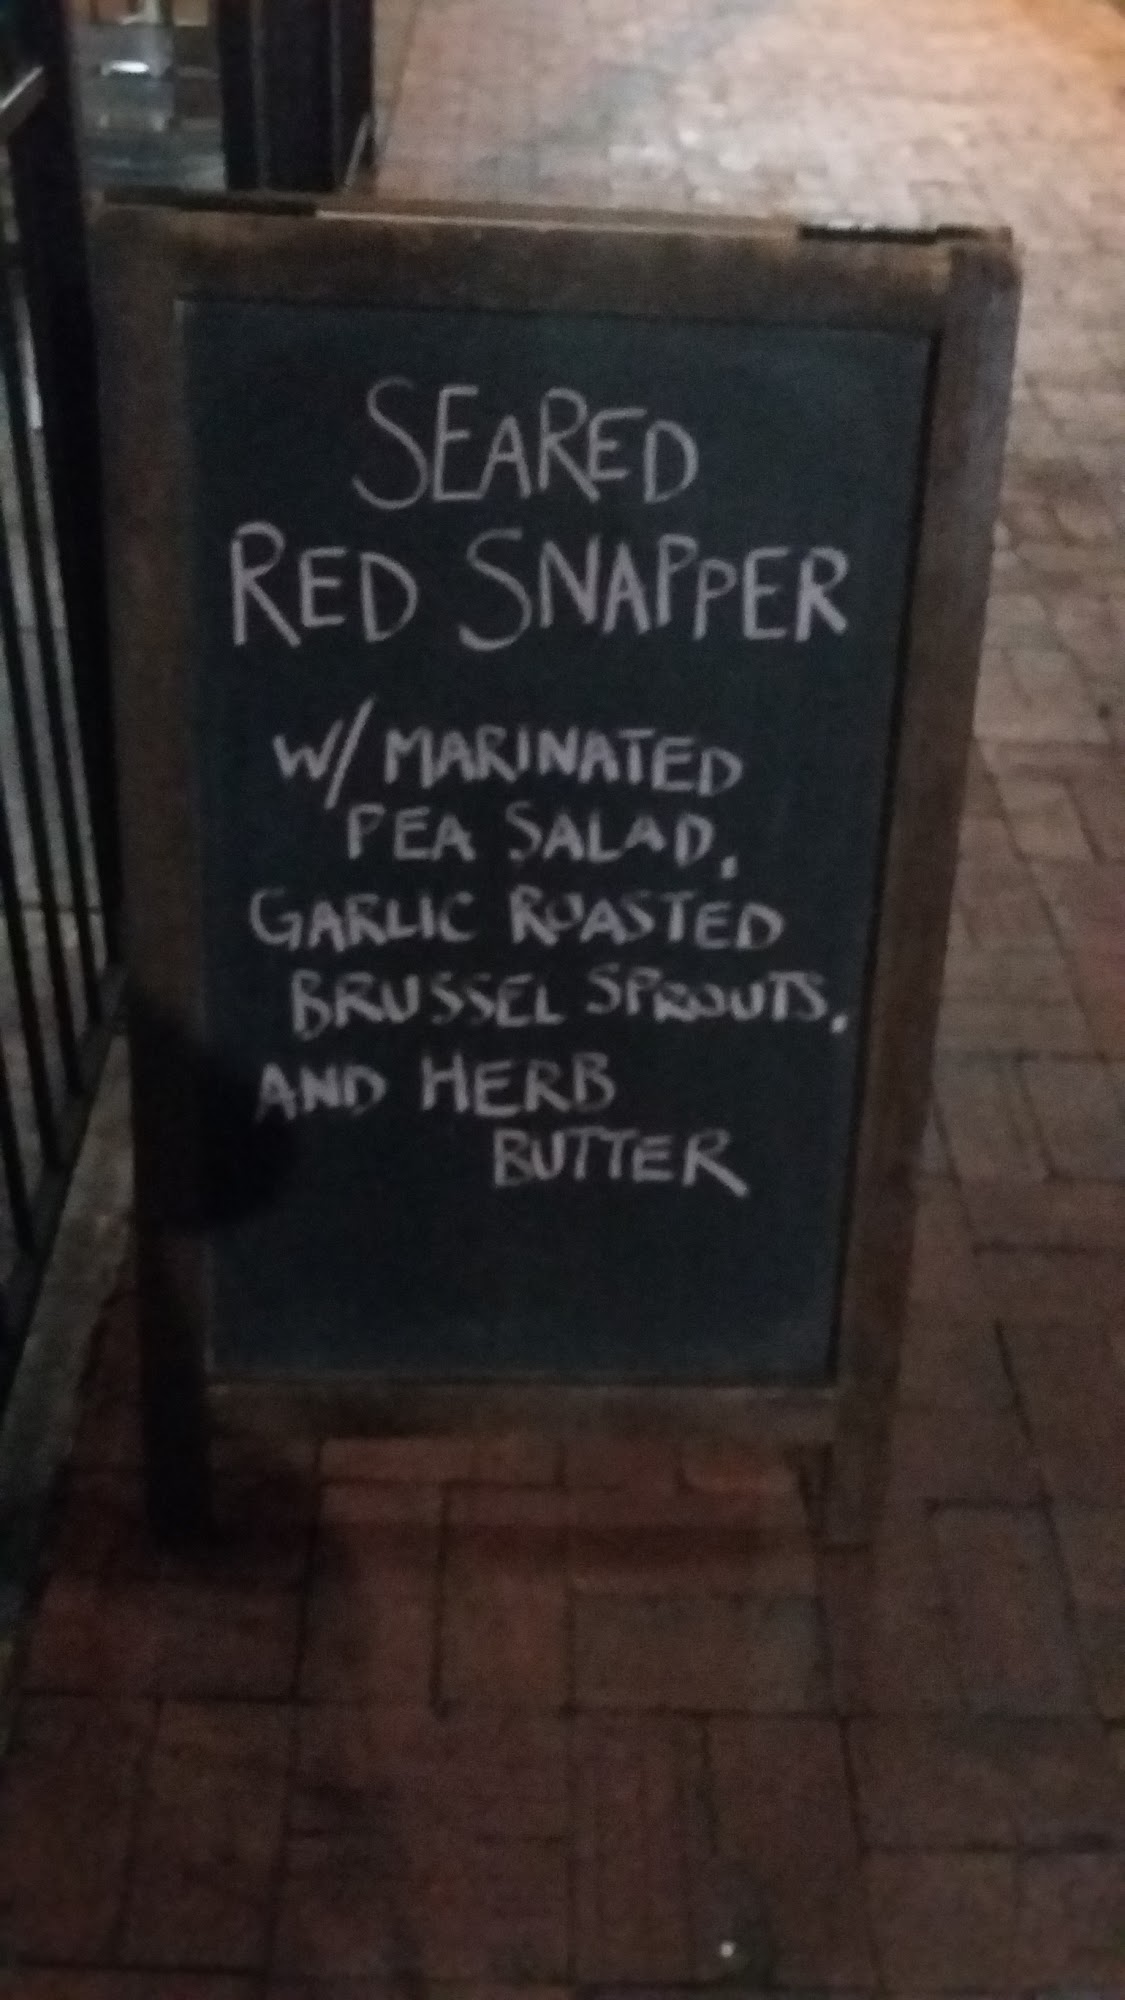 SEARED
RED SNAPPER
W/ MARINATED
PEA SALAD,
GARLIC ROASTED
BRUSSEL SPROUTS,
AND HERB
BUTTER